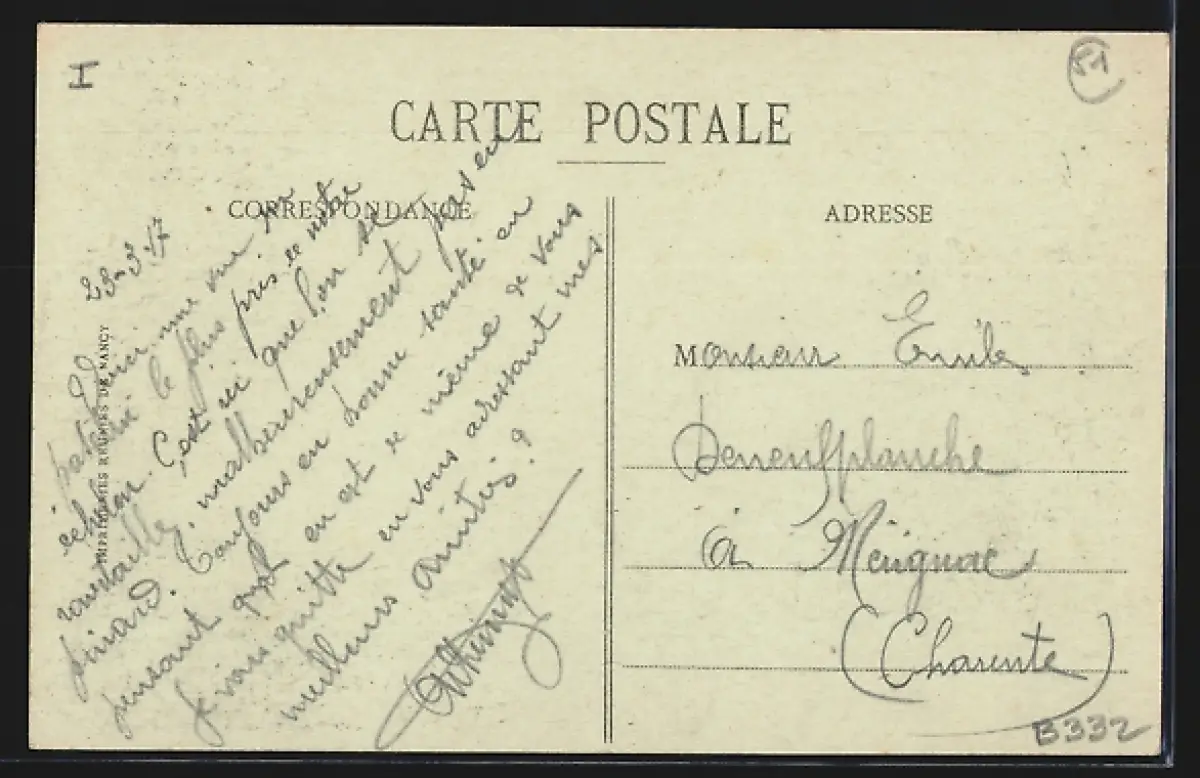 I
51
CARTE POSTALE
CORRESPONDANCE
ADRESSE
IMPRIMERIES RÉUNIES DE NANCY
23-3-17
ici une vue du
patelin le plus près de notre
échelon. C'est ici que l'on se
ravitaille, malheureusement pas en
pinard. Toujours en bonne santé en
pensant qu'il en est de même de vous
Je vous quitte en vous adressant mes
meilleurs amitiés
Monsieur Emile
Deneufplanche
à Mérignac
(Charente)
B332